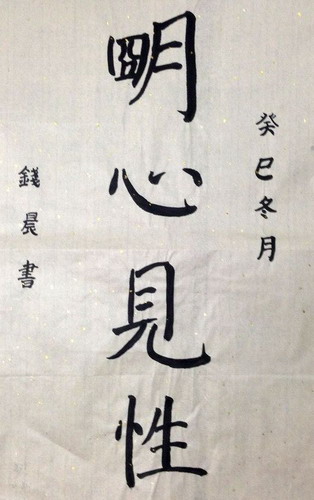 癸巳冬月
朙心見性
錢晨書